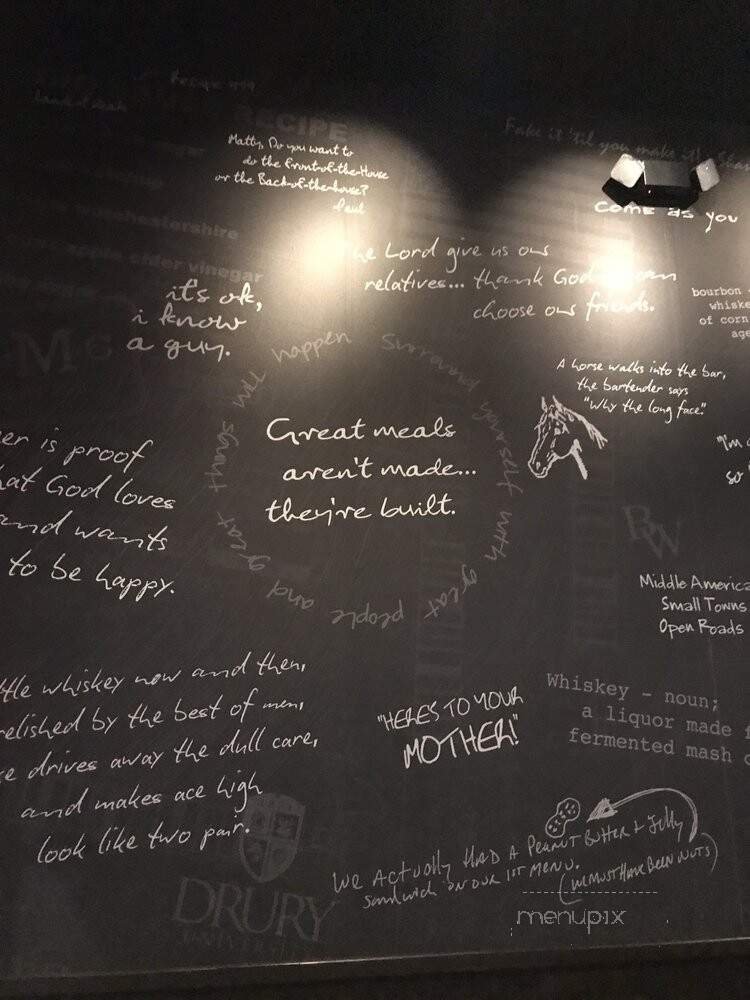 RECIPE
Matty, Do you want to
do the front-of-the-House
or the Back-of-the-house?
Paul
Fake it 'til you make it!
come as you
cider vinegar
Lord give us our
relatives... thank God
choose our friends.
it's ok,
i know
a guy.
bourbon
whiske
of corn
age
A horse walks into the bar,
the bartender says
"Why the long face?"
Surround yourself with great people and great things will happen
Great meals
aren't made...
they're built.
er is proof
hat God loves
and wants
to be happy.
"I'm
so
RW
Middle America
Small Towns
Open Roads
ttle whiskey now and then,
relished by the best of men,
drives away the dull care,
and makes ace high
look like two pair.
"HERES TO YOUR
MOTHER!"
Whiskey - noun;
a liquor made
fermented mash
We Actually HAD A Peanut Butter & Jelly
sandwich on our 1st menu.
(we must have been nuts)
DRURY
UNIVERSITY
menupix